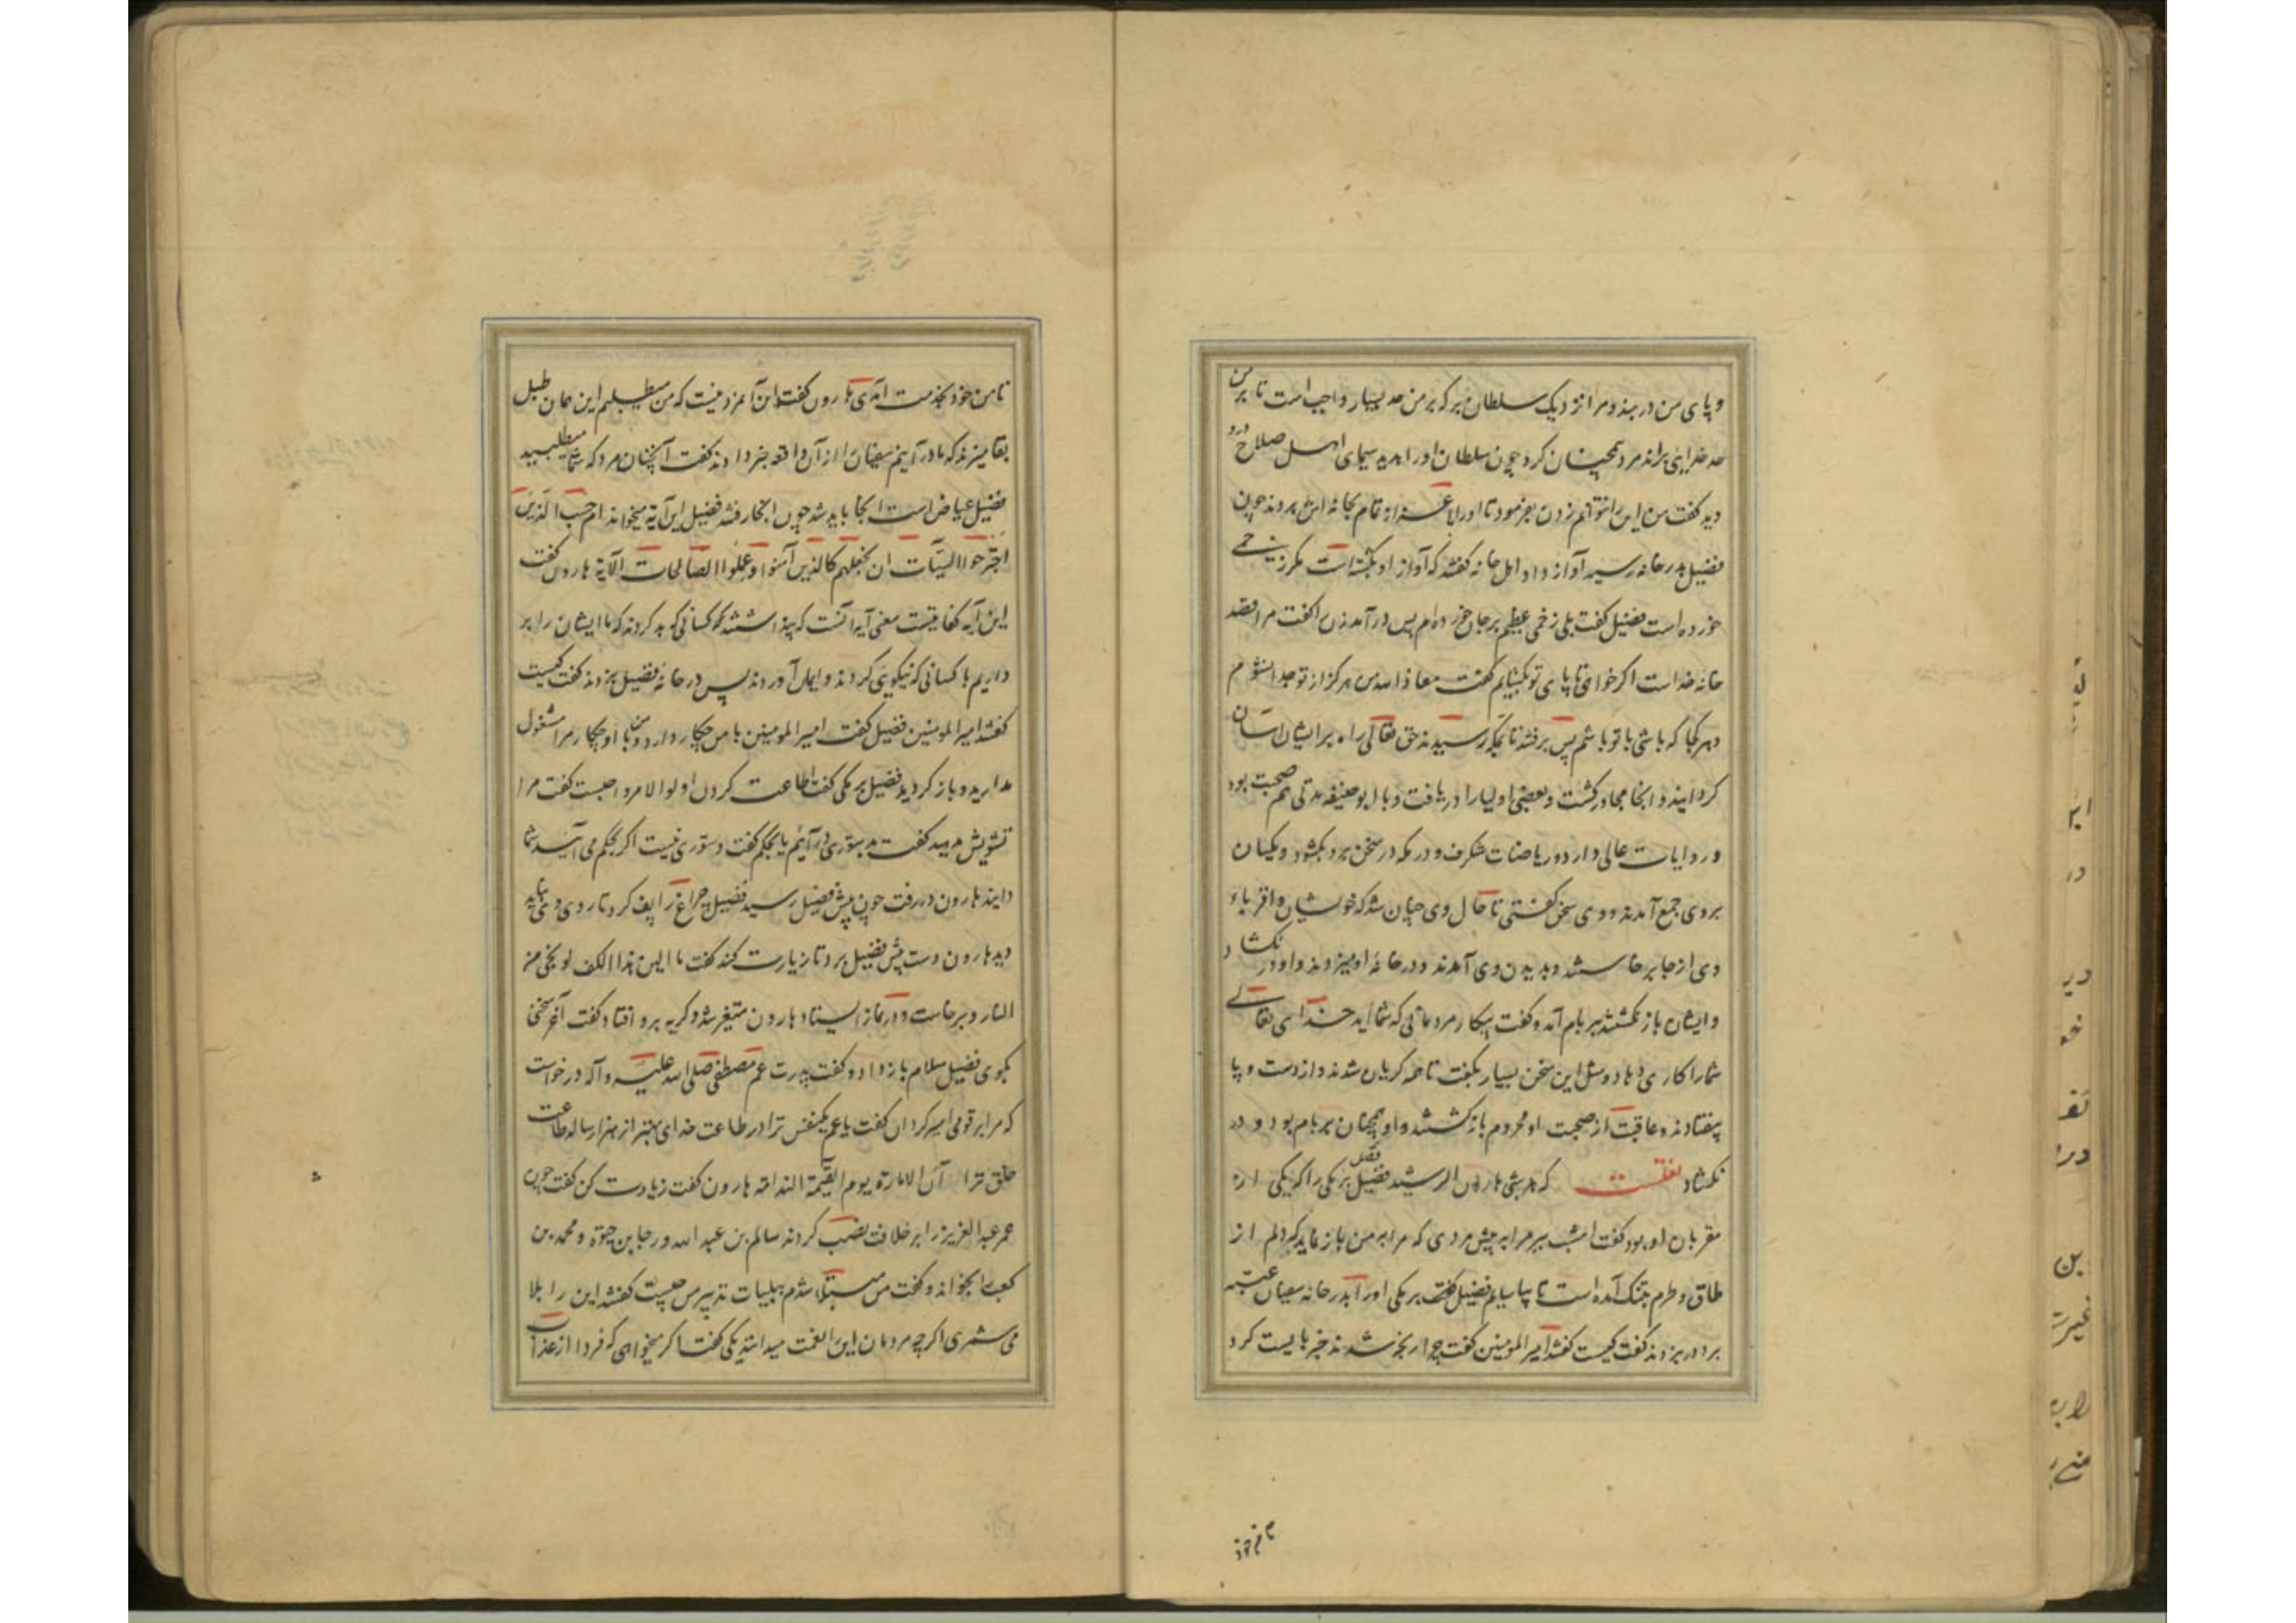 و پای من در بند و مرا نزدیک سلطان بر که بر من حد بسیار واجب است تا بر من
حد خدایی براند مرد همچنان کرد چون سلطان او را بدید سیمای اهل صلاح درو
دید گفت من این را نتوانم زدن بفرمود تا او را با عزاز تمام بخانه اش بردند چون
فضیل بدر خانه رسید آواز داد اهل خانه گفتند که آواز او بگشته است مگر زخمی
خورده است فضیل گفت بلی زخمی عظیم بر جان خورده ام پس درآمد زن را گفت مرا قصد
خانه خداست اگر خواهی تا پای تو بگشایم گفت معاذ الله من هرگز از تو جدا نشوم
و هر کجا که باشی با تو باشم پس برفتند تا بمکه رسیدند حق تعالی راه بر ایشان آسان
گردانید و آنجا مجاور گشت و بعضی اولیا را دریافت و با ابوحنیفه مدتی هم صحبت بود
و روایات عالی دارد و ریاضات شگرف و در مکه در سخن برو بگشود و مکیان
بر وی جمع آمدند و وی سخن گفتی تا حال وی چنان شد که خویشان و اقربا و
وی از جا برخاستند و بدیدن وی آمدند و در خانه او میزدند و او در نگشاد و
و ایشان باز نگشتند بر بام آمد و گفت بیکار مردمانی که شما اید خدای تعالی
شما را کاری دهاد و مثل این سخن بسیار بگفت تا همه گریان شدند و از دست و پا
بیفتادند و عاقبت از صحبت او محروم بازگشتند و او همچنان بر بام بود و در
نگشاد نقلست که هر شبی هارون الرشید فضل برمکی را که یکی از
مقربان او بود گفت امشب مرا بر پیش مردی که مرا به من باز نماید که دلم از
طاق و طرم بتنگ آمده است تا بیاسایم فضیل گفت برمکی او را بدر خانه سفیان عتبه
برد در بزدند گفت کیست گفتند امیر المؤمنین گفت چرا رنجه شدند خبر بایست کرد
تا من خود
تا من خود بخدمت آمدی هارون گفت این آن مرد نیست که من میطلبم این همان طبل
بقا میزند که ما در آنیم سفیان را از آن واقعه خبر دادند گفت آنچنان مرد که شما میطلبید
فضیل عیاض است آنجا باید شد چون آنجا رفتند فضیل این آیه میخواند ام حسب الذین
اجترحوا السیئات ان نجعلهم کالذین آمنوا و عملوا الصالحات الآیة هارون گفت
این آیه کفایتست معنی آیه آنست که پنداشتند کسانی که بد کردند که ما ایشان را برابر
داریم با کسانی که نیکویی کردند و ایمان آوردند پس در خانه فضیل بزدند گفت کیست
گفتند امیر المؤمنین فضیل گفت امیر المؤمنین با من چکار دارد و من با او چکار مرا مشغول
مدارید و باز گردید فضیل برمکی گفت اطاعت کردن اولوا الامر واجبست گفت مرا
تشویش مدهید گفت بدستوری درآئیم یا بحکم گفت دستوری نیست اگر بحکم می آئید شما
دانید هارون در رفت چون پیش فضیل رسید فضیل چراغ را پف کرد تا روی وی نباید
دید هارون دست پیش فضیل برد تا زیارت کند گفت ما الین هذا الکف لو نجی من
النار و برخاست و در نماز ایستاد هارون متغیر شد و گریه برو افتاد گفت آخر سخنی
بگوی فضیل سلام باز داد و گفت پدرت عم مصطفی صلی الله علیه و آله درخواست
که مرا بر قومی امیر گردان گفت یا عم یکنفس ترا در طاعت خدای بهتر از هزار ساله طاعت
خلق ترا ان الامارة یوم القیمة الندامة هارون گفت زیادت کن گفت چون
عمر عبد العزیز را بر خلافت نصب کردند سالم بن عبد الله و رجا بن حیوة و محمد بن
کعب را بخواند و گفت من مبتلا شدم ببلیات تدبیر من چیست گفتند این را بلا
می شمری اگر چه مردمان این را نعمت میدانند یکی گفت اگر میخواهی که فردا از عذاب